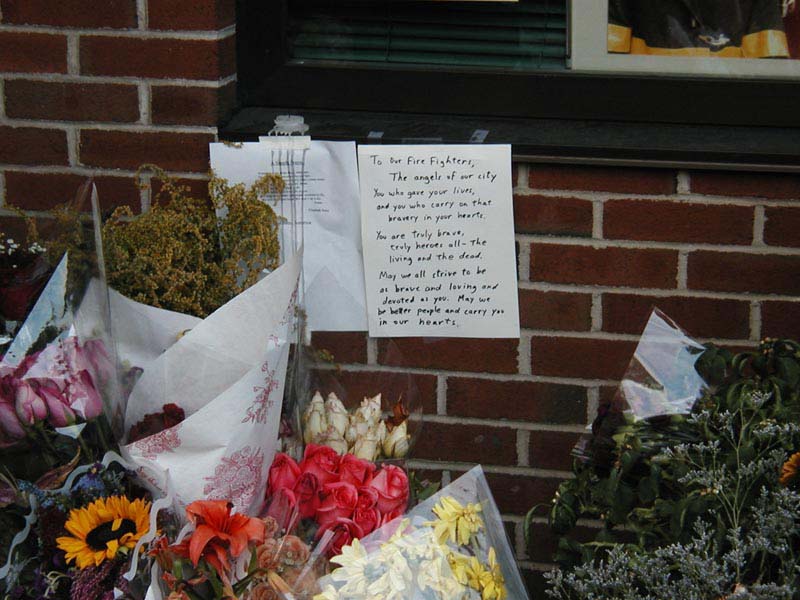 To Our Fire Fighters,
The angels of our city
You who gave your lives,
and you who carry on that
bravery in your hearts.
You are truly brave,
truly heroes all - The
living and the dead.
May we all strive to be
as brave and loving and
devoted as you. May we
be better people and carry you
in our hearts.